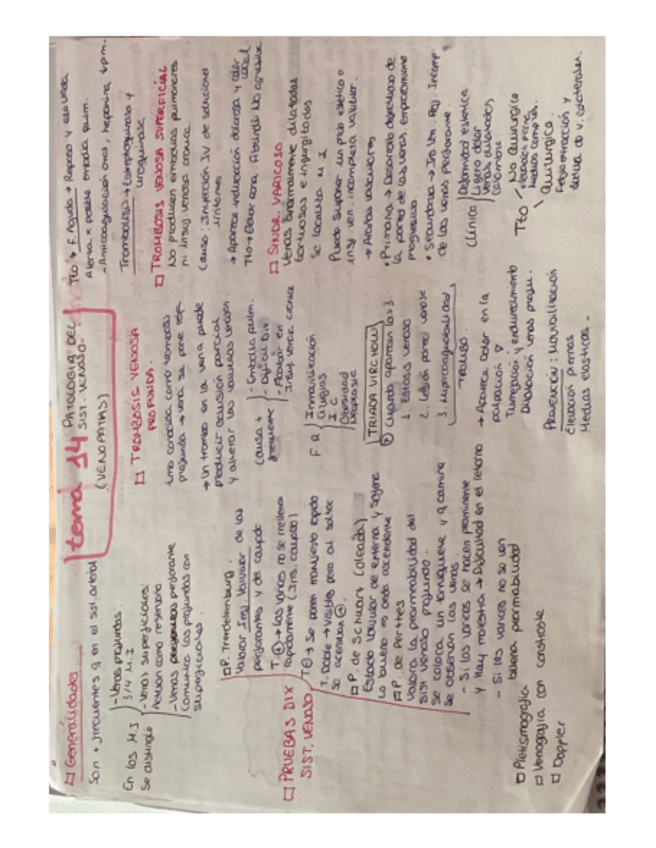 tema 14 PATOLOGÍA DEL
SIST. VENOSO.
(VENOPATIAS)
□ Generalidades
Son + frecuentes q en el sist arterial
En los M.I
Se distingue
- Venas profundas
3/4 M.I
- Venas superficiales:
Actúan como reservorio
- Venas perforante
Comunica las profundas con
superficiales.
□ PRUEBAS DIX
SIST. VENOSO
□ P. Trendelemburg.
Valorar Ins. Valvular de las
perforantes y de cayado
T. ⊕ → las varices no se rellena
rapidamente (Ins. cayado)
T ⊖ → Se ponen manifiesto rapido
T. Doble → Visibles pero al soltar
se acentúan ⊕.
□ P. de Schwart (oleada)
Estado valvular de externa y safena
Lo bueno es onda ascendente
□ P. de Perthes
Valora la permeabilidad del
sist venoso profundo.
Se coloca un torniquete y q camine
Se observan las venas.
- Si las varices se hacen prominente
y Hay molestia → Dificultad en el retorno
- Si las varices no se ven
buena permeabilidad
□ Pletismografia
□ Venografia con contraste
□ Doppler
□ TROMBOSIS VENOSA
PROFUNDA.
→ Un trombo en la vena puede
producir oclusión parcial
y alterar las valvulas venosa.
Causa +
frecuente
- Embolia pulm.
- Dificil Dix
- Acabar en
Insuf venosa cronica
F R
Inmovilización
Cirugias
I.
Obesidad
Neoplasia
TRIADA VIRCHOW
Cuando aparecen las 3
1. Estasis venoso
2. Lesión pared venosa
3. Hipercoagulabilidad
TROMBO.
→ Aparece dolor en la
palpación
Tumefacción y endurecimiento
Dilatación venas
PREVENCIÓN: Movilización
Elevación piernas
Medias elasticas.
Tto → F. Aguda → Reposo y elevada
Alerta x posible embolia pulm.
- Anticoagulación oral, heparina bpm.
Trombolisis → Estreptoquinasa y
uroquinasa
□ TROMBOSIS VENOSA SUPERFICIAL
No producen embolias pulmonares
ni insuf venosa cronica
Causa: Inyección IV de soluciones
irritantes
→ Aparece induración dolorosa y calor
local
□ SINDR. VARICOSO
Venas anormalmente dilatadas
tortuosas e ingurgitadas
Se localiza M I
Puede suponer un prob estético o
insuf ven. incompleta valvular.
→ Alteras valvulares
• Primaria → Desarrollo defectuoso de
la pared de las venas, empeoramiento
progresivo
• Secundaria → Ins Vn. Prof Incomp
de las venas perforante.
Clínica
Deformidad estetica
Ligero dolor
Venas dilatadas,
Edema
Tto
No Quirurgica
Medias compres.
Quirurgica
Fleboextracción y